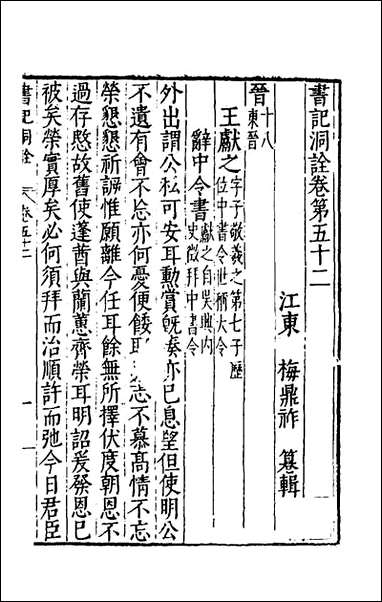 書記洞詮卷第五十二
江東 梅鼎祚 纂輯
晉十八東晉
王獻之字子敬羲之第七子歷位中書令世稱大令
辭中令書獻之自吳興內史徵拜中書令
外出謂公私可安耳勲賞旣奏亦已息望但使明公
不遺有會不忩亦何憂便餧耳志不慕高情不忘
榮懇懇祈謁惟願離今任耳餘無所擇伏度朝恩不
過存愍故舊使蓬蓿與蘭蕙齊榮耳明詔爰發恩已
被矣榮實厚矣必何須拜而治順許而弛今日君臣
書記洞詮 卷五十二 一